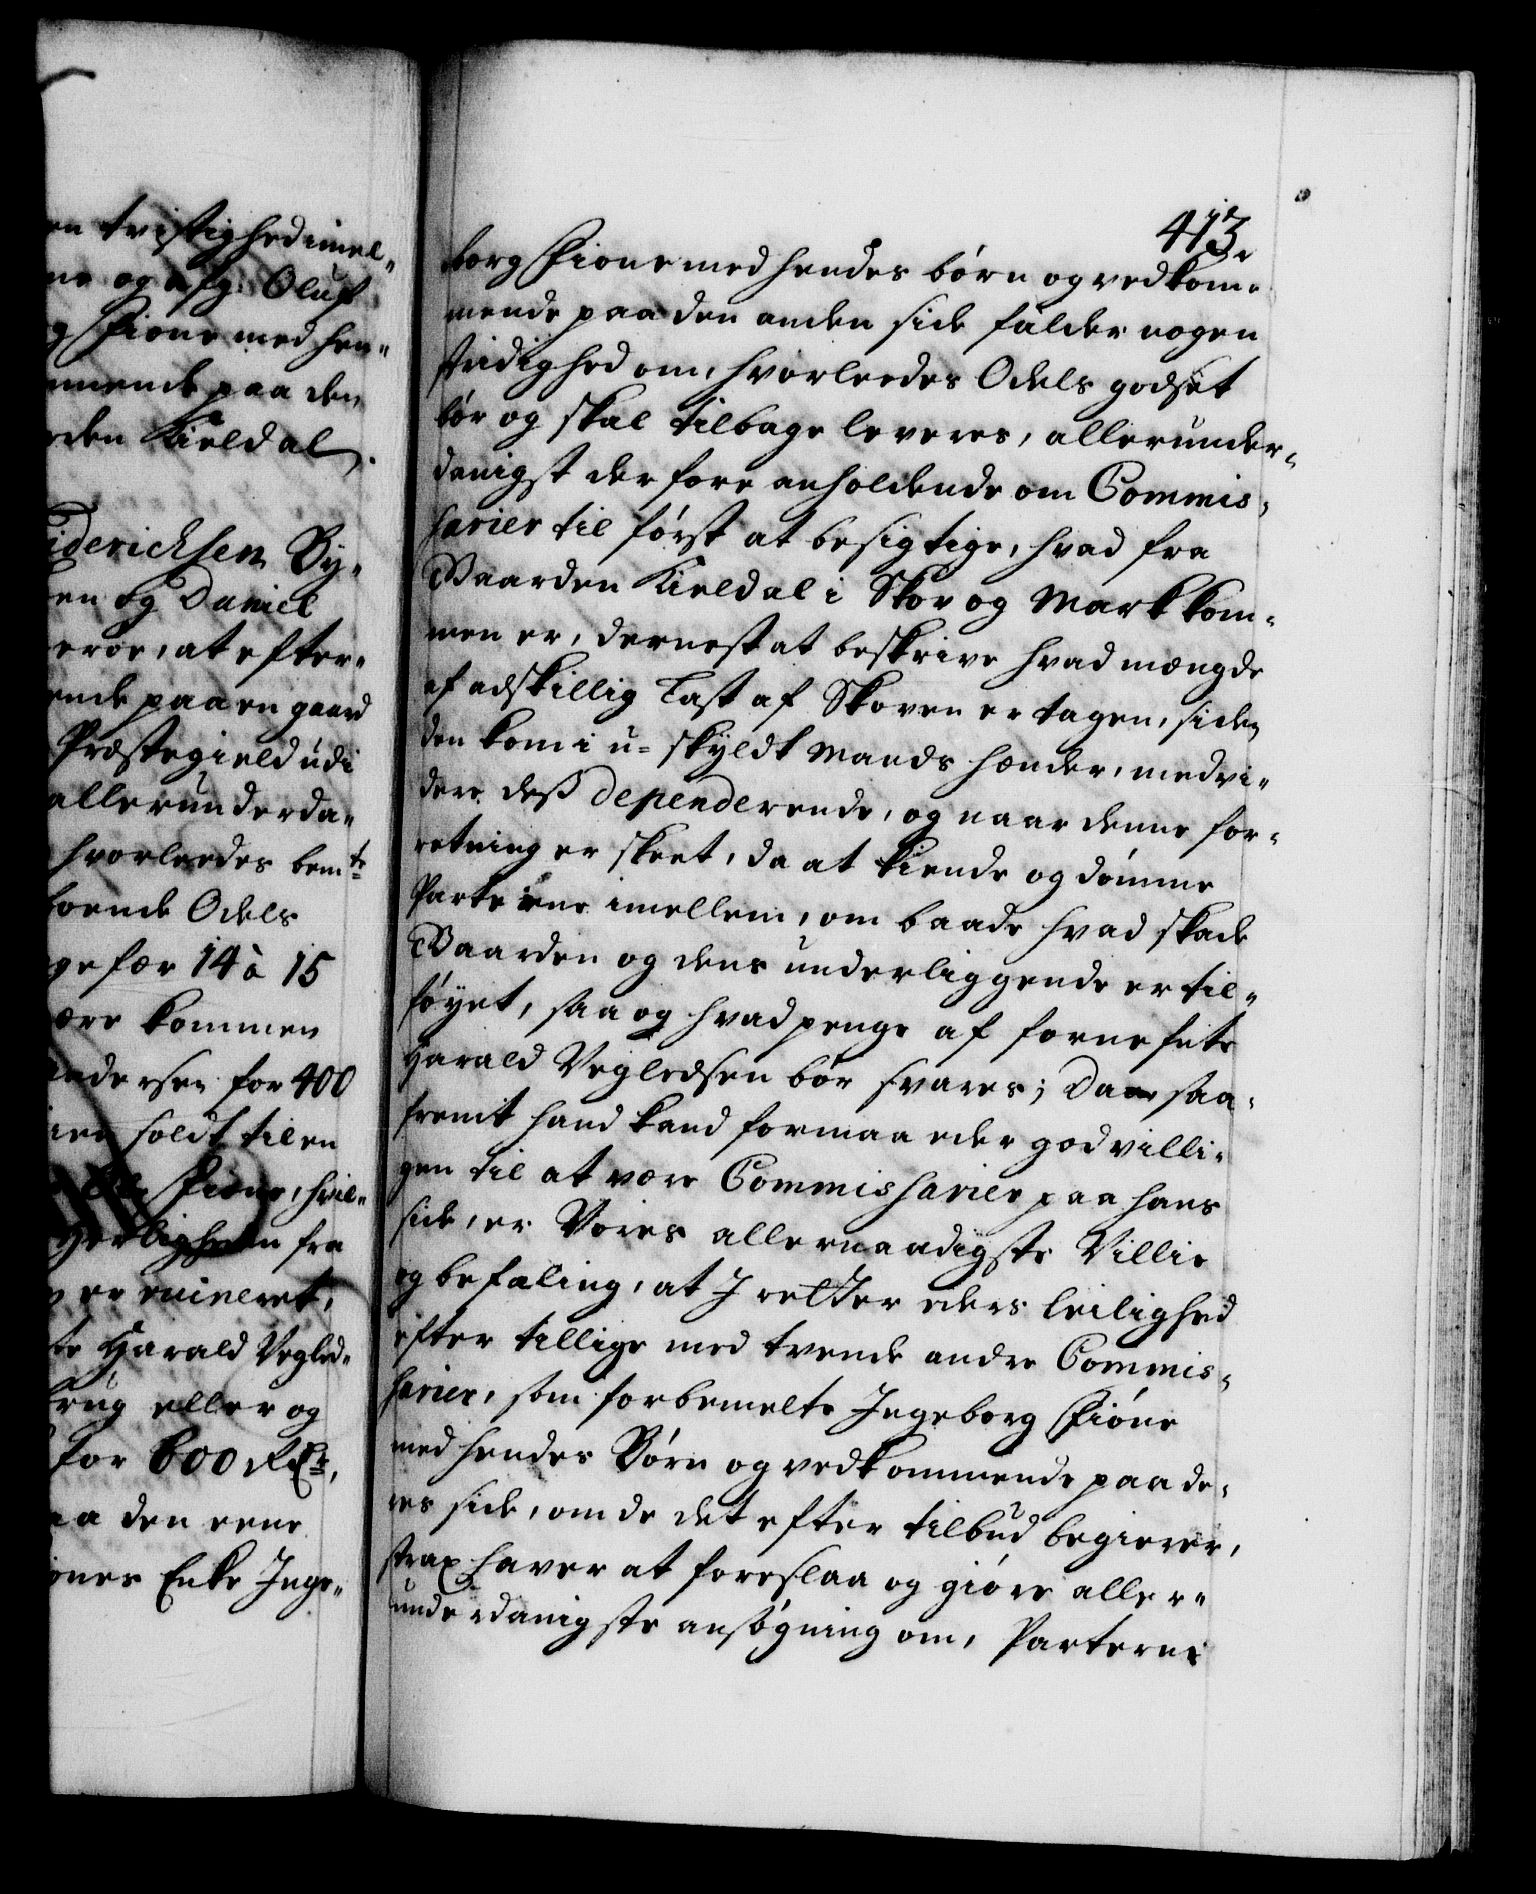 en tvistighed imel-
ne og afg: Oluf
g Fiøne med hen-
mmende paa den
rden Kieldal.
iderichsen By-
en og Daniel
erøe, at efter-
ende paa en gaard
Præstegield udi
allerunderda-
hvorleedes bemte
boende Odels
gefær 14 à 15
ære kommen
Andersen for 400
ien soldt til en
Fiøne, hvil-
Herligheden fra
er ruineret,
te Harald Vegled-
brug eller og
for 600 Rdr,
aa den eene
iønes Enke Inge-
413.
borg Fiøne med hendes børn og vedkom-
mende paa den anden side falder nogen
stridighed om, hvorleedes Odels godset
bør og skal tilbage leveres, allerunder-
danigst derfore anholdende om Commis-
sarier til først at besigtige, hvad fra
Gaarden Kieldal i Skov og Mark kom-
men er, dernest at beskrive hvad mængde
af adskillig Last af Skoven er tagen, siden
den kom i u-skyldt Mands hænder, med vi-
dere deß dependerende, og naar denne for-
retning er skeet, da at kiende og dømme
Parterne imellem, om baade hvad skade
Gaarden og dens underliggende er til-
føyet, saa og hvad penge af fornefnte
Harald Vegledsen bør svares; Da saa-
fremt hand kand formaa eder godvilli-
gen til at være Commissarier paa hans
side, er Vores allernaadigste Villie
og befaling, at J retter eders leilighed
efter tillige med tvende andre Commis-
sarier, som forbemelte Ingeborg Fiøne
med hendes Børn og vedkommende paa de-
res side, om de det efter tilbud begierer,
strax haver at foreslaa og giøre aller-
underdanigste ansøgning om, Parterne